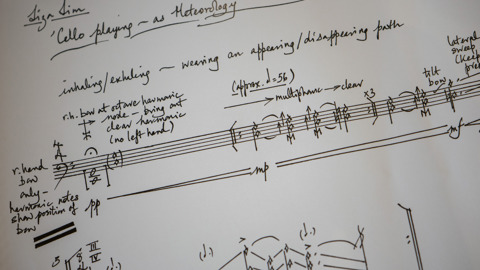 Liza Lim
'Cello playing – as Meteorology
inhaling/exhaling – weaving an appearing/disappearing path
(approx. ♩=56)
→ multiphonic → clear
r.h. bow at octave harmonic
node – bring out
clear harmonic
(no left hand)
x3
tilt
bow
lateral
sweep
(keep
r. hand
bow
only –
harmonic notes
show position of
bow
pp
mp
mf
M M M M
III
IV
(♩.) (♩.) (♩.)